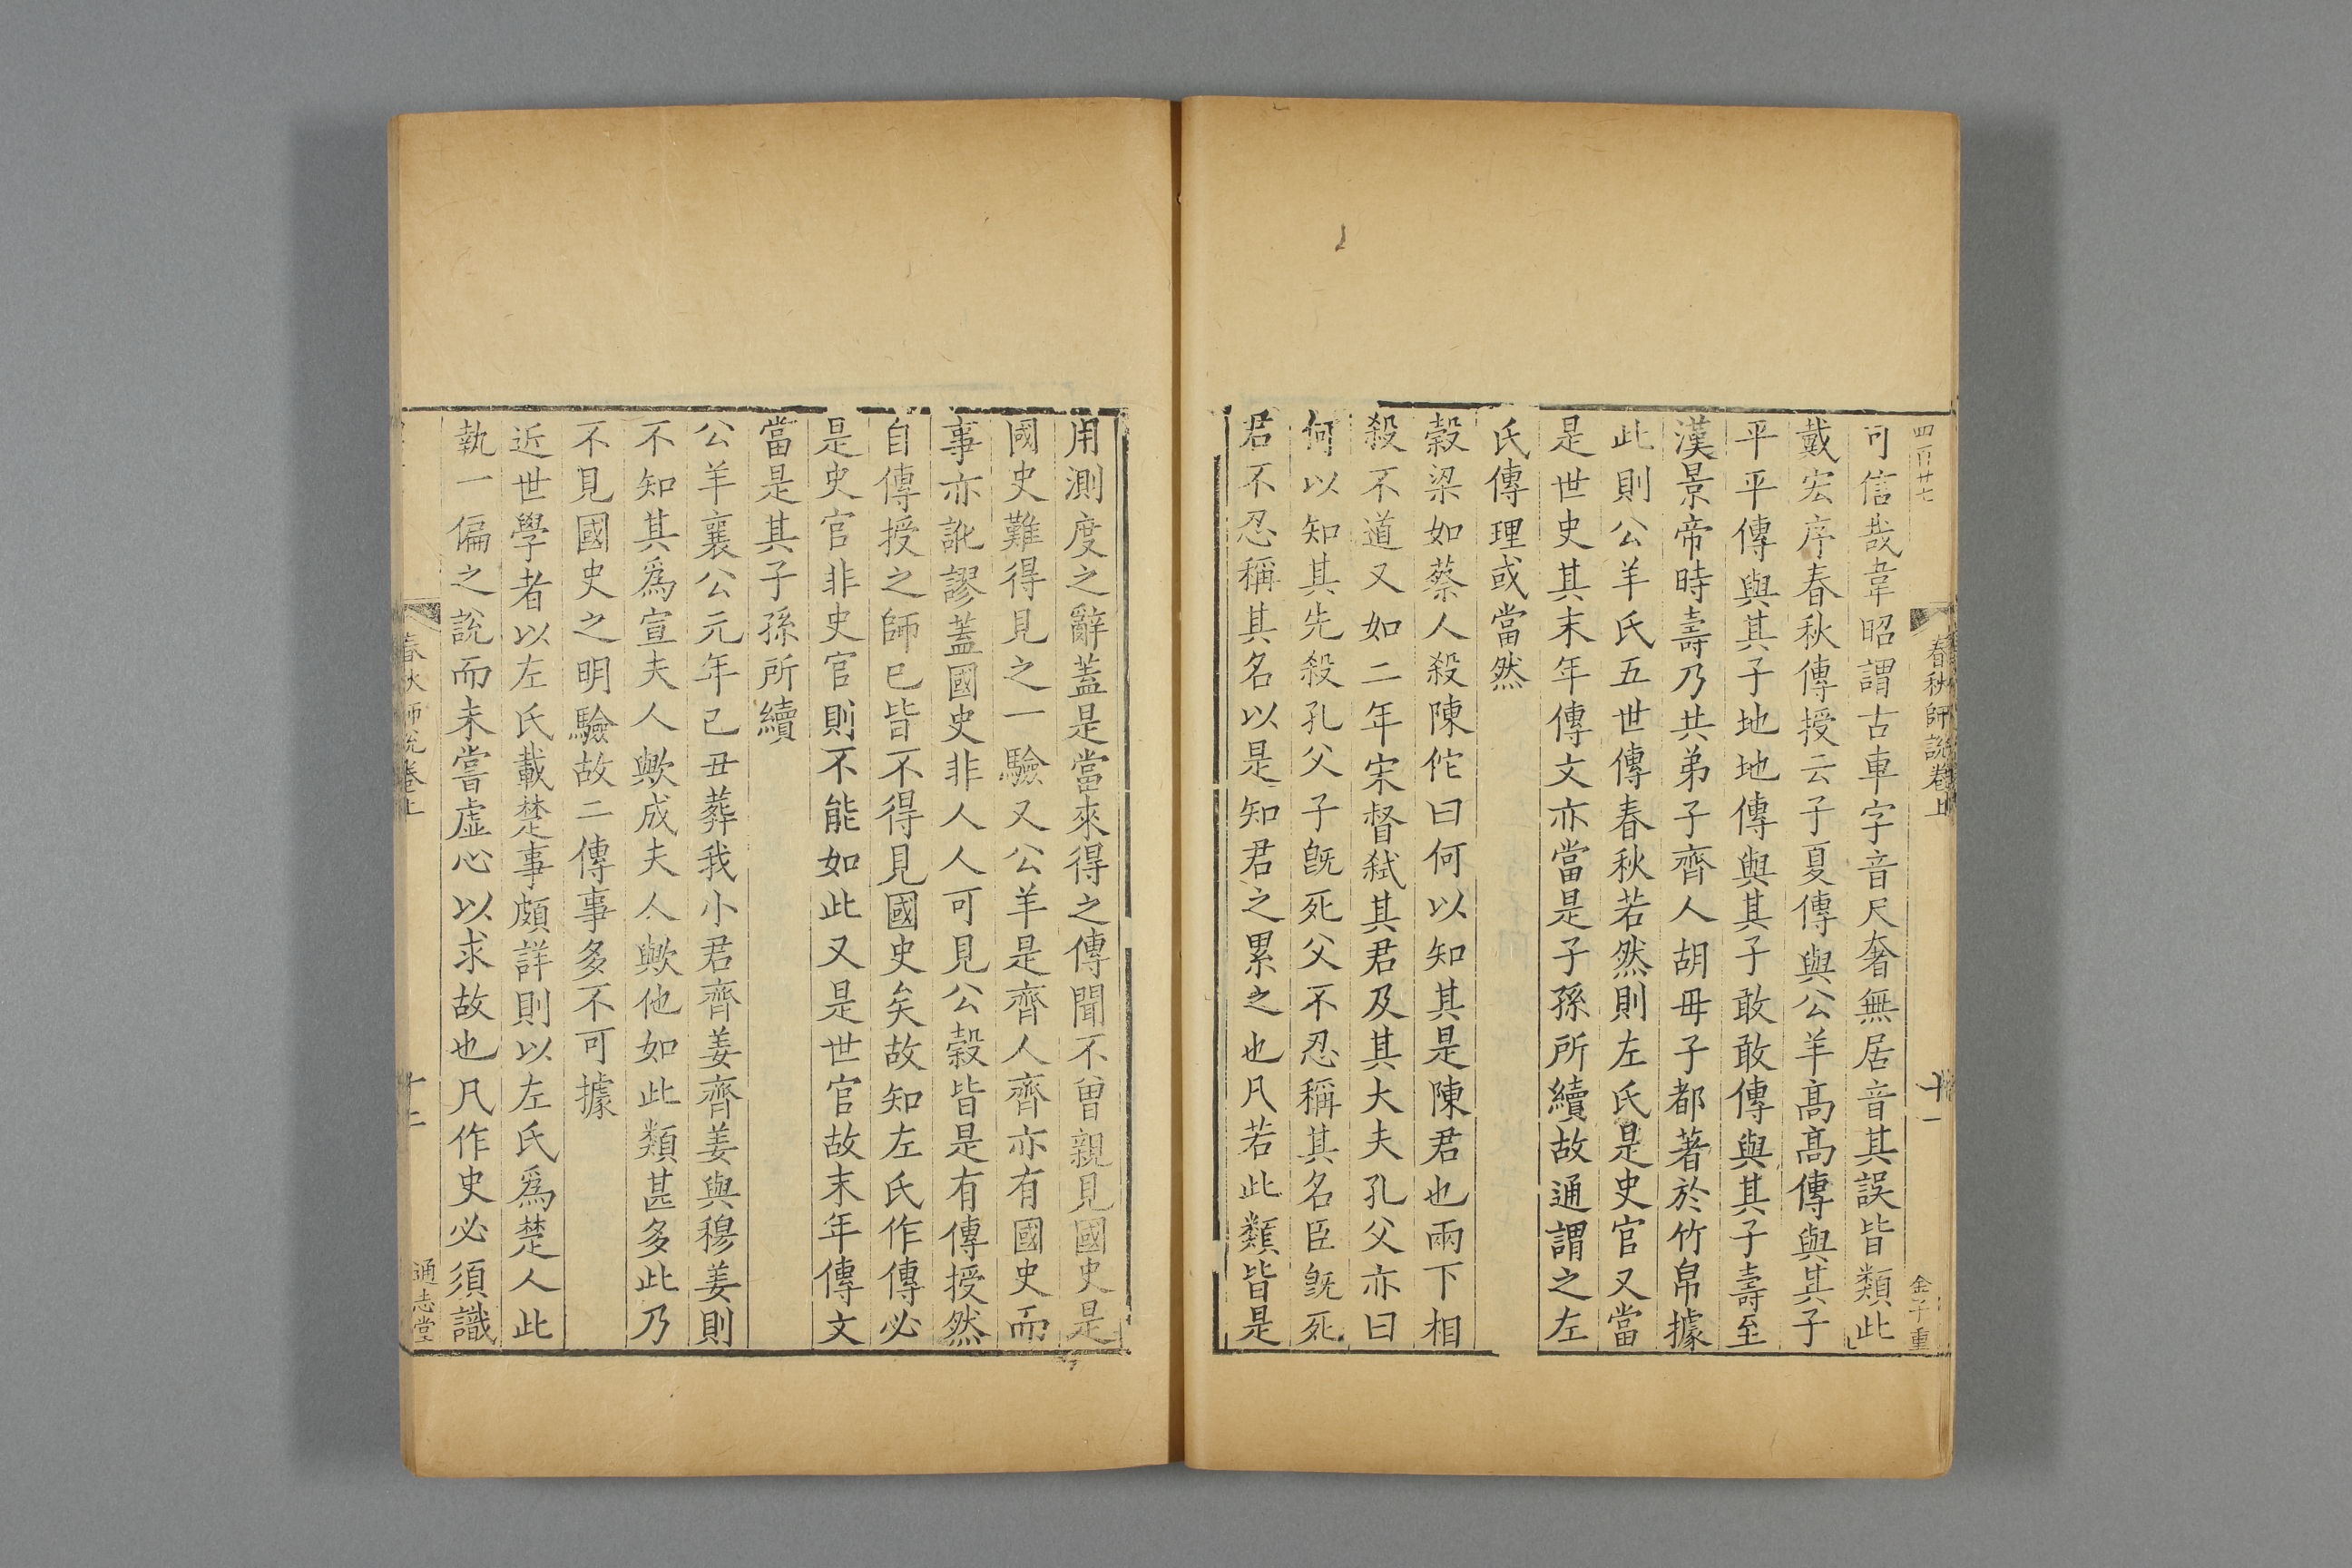 四百廿七
春秋師說卷上
十一
金子重
可信哉韋昭謂古車字音尺奢無居音其誤皆類此
戴宏序春秋傳授云子夏傳與公羊高高傳與其子
平平傳與其子地地傳與其子敢敢傳與其子壽至
漢景帝時壽乃共弟子齊人胡毋子都著於竹帛據
此則公羊氏五世傳春秋若然則左氏是史官又當
是世史其末年傳文亦當是子孫所續故通謂之左
氏傳理或當然
穀梁如蔡人殺陳佗曰何以知其是陳君也兩下相
殺不道又如二年宋督弒其君及其大夫孔父亦曰
何以知其先殺孔父子旣死父不忍稱其名臣旣死
君不忍稱其名以是知君之累之也凡若此類皆是
用測度之辭蓋是當來得之傳聞不曾親見國史是
國史難得見之一驗又公羊是齊人齊亦有國史而
事亦訛謬蓋國史非人人可見公穀皆是有傳授然
自傳授之師已皆不得見國史矣故知左氏作傳必
是史官非史官則不能如此又是世官故末年傳文
當是其子孫所續
公羊襄公元年己丑葬我小君齊姜齊姜與穆姜則
不知其爲宣夫人歟成夫人歟他如此類甚多此乃
不見國史之明驗故二傳事多不可據
近世學者以左氏載楚事頗詳則以左氏爲楚人此
執一偏之說而未嘗虛心以求故也凡作史必須識
春秋師說卷上
十二
通志堂